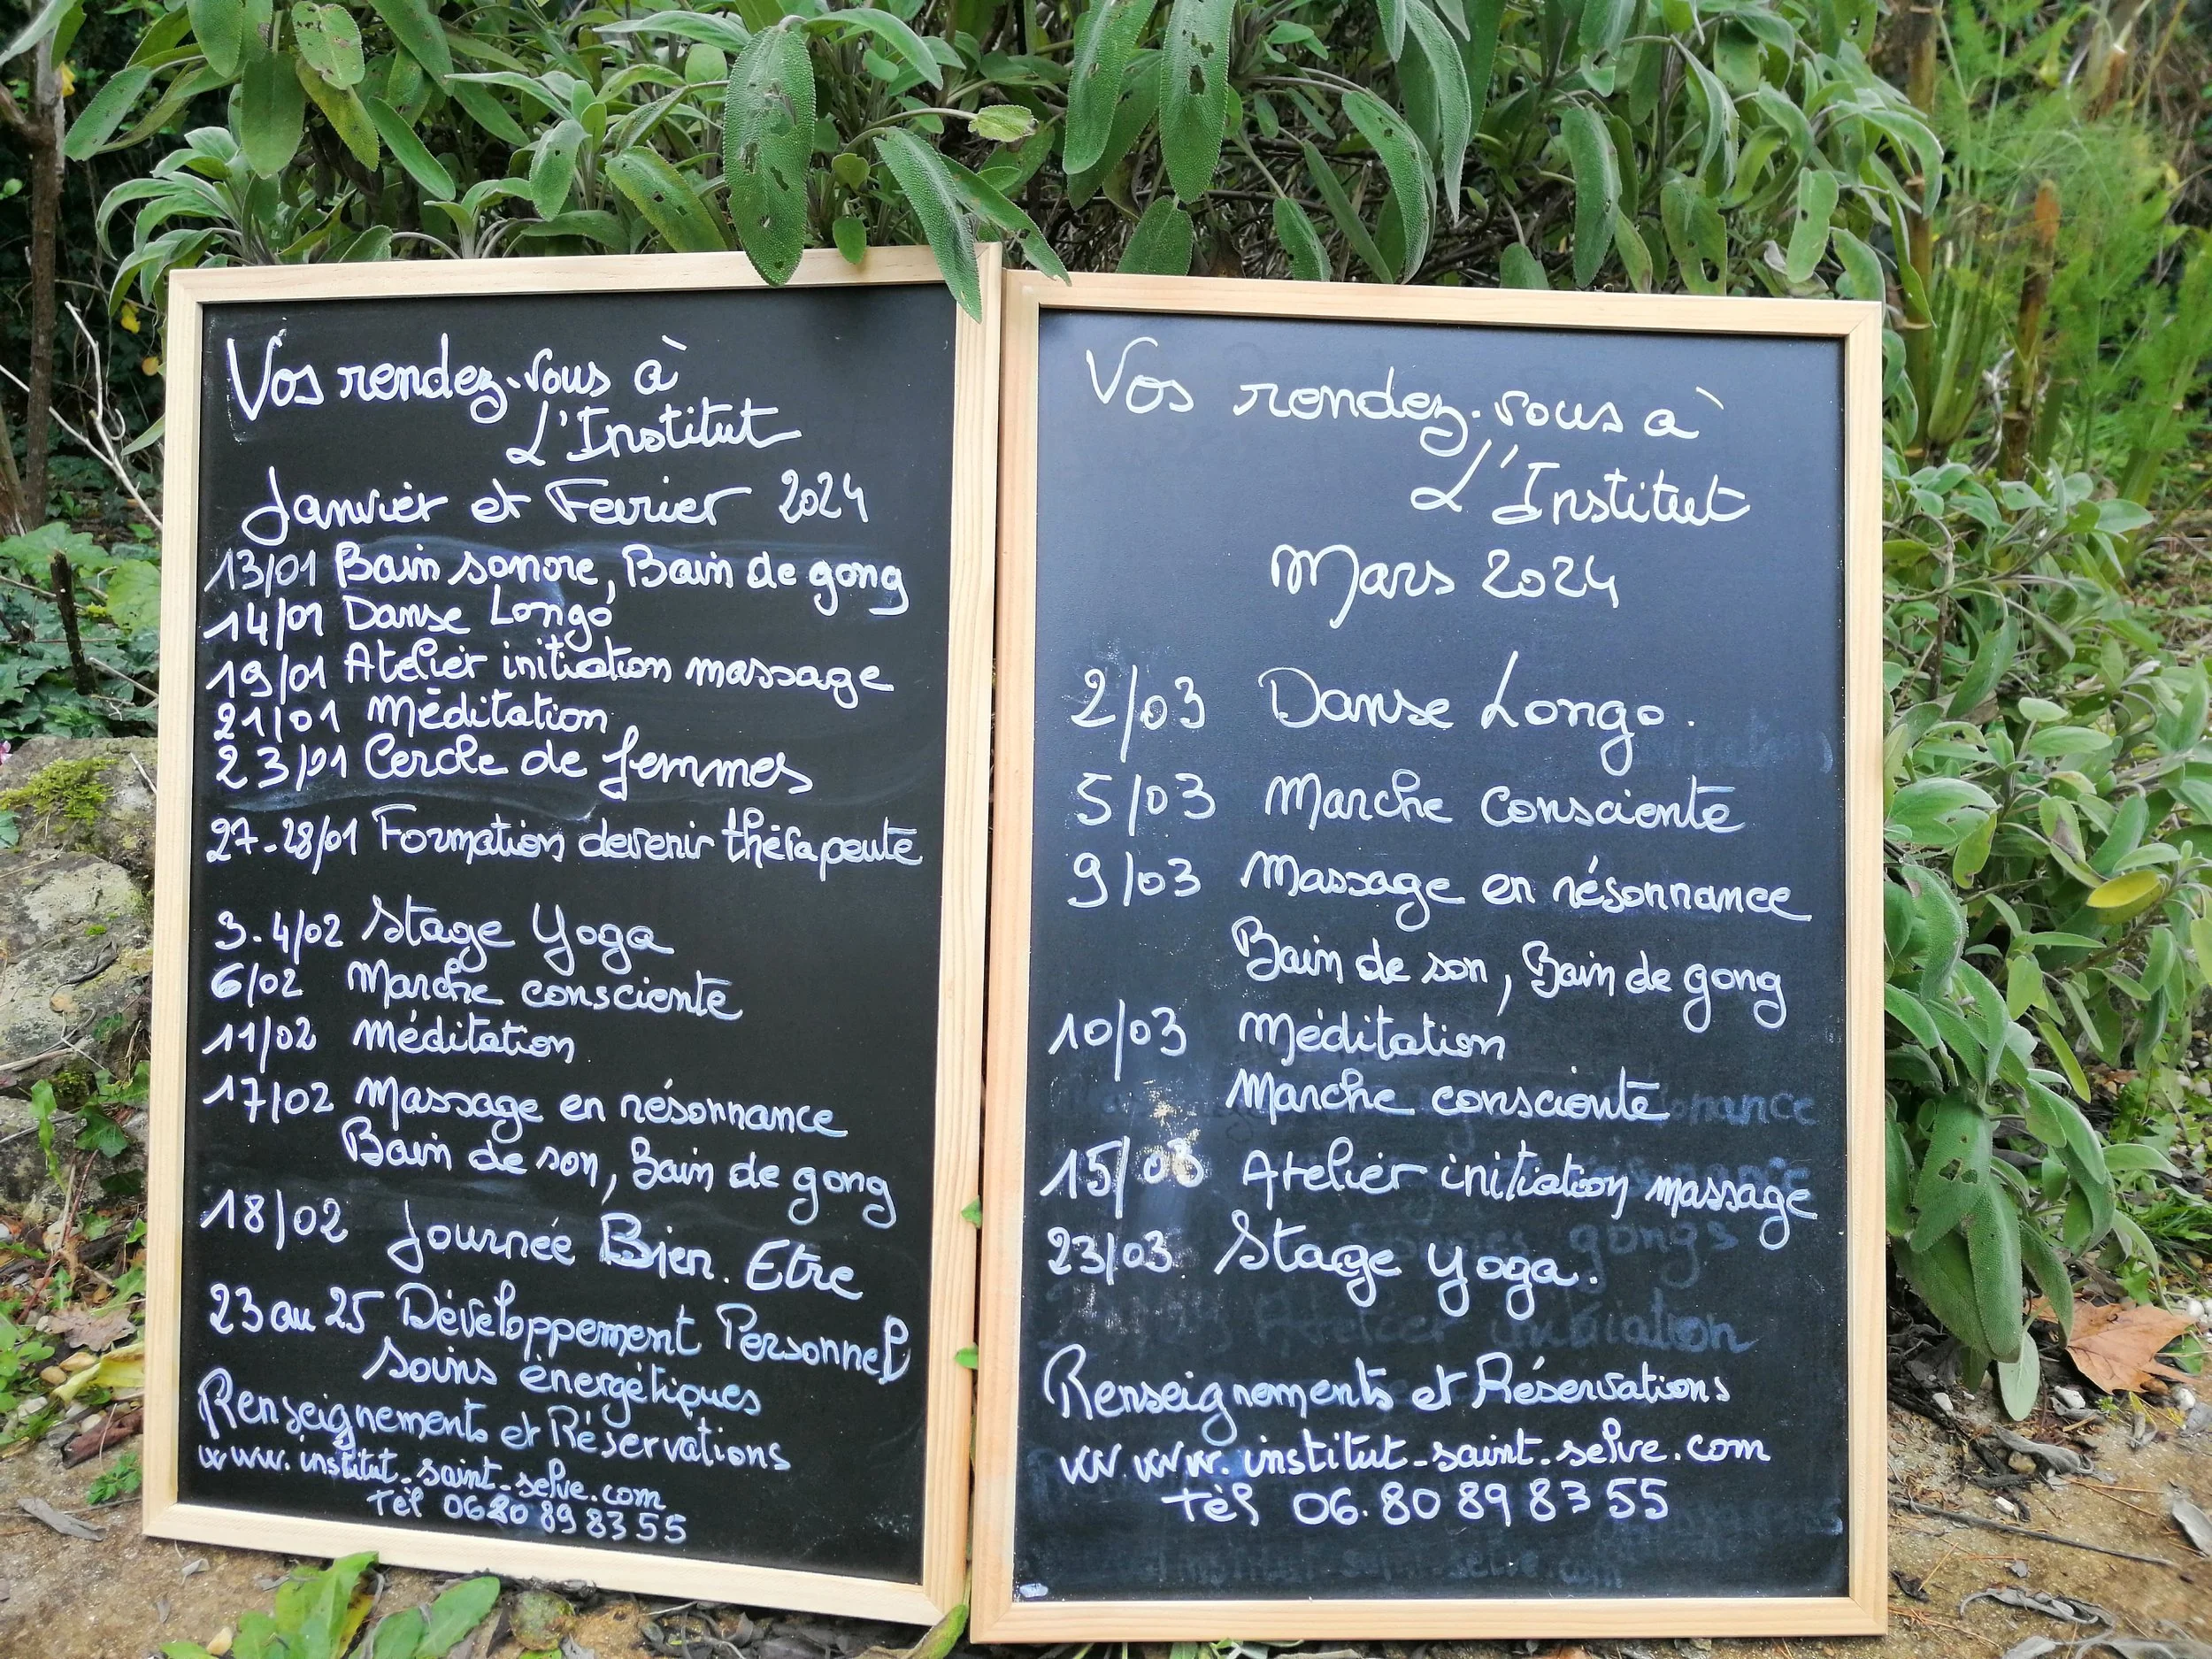 Vos rendez-vous à
L'Institut
Janvier et Fevrier 2024
13/01 Bain sonore, Bain de gong
14/01 Danse Longo
19/01 Atelier initiation massage
21/01 Méditation
23/01 Cercle de femmes
27-28/01 Formation devenir thérapeute
3-4/02 Stage Yoga
6/02 Marche consciente
11/02 méditation
17/02 Massage en résonnance
Bain de son, Bain de gong
18/02 Journée Bien-Etre
23 au 25 Développement Personnel
soins énergétiques
Renseignements et Réservations
www.institut-saint-selve.com
Tél 06 80 89 83 55
Vos rendez-vous à
L'Institut
Mars 2024
2/03 Danse Longo.
5/03 Marche Consciente
9/03 Massage en résonnance
Bain de son, Bain de gong
10/03 Méditation
Marche consciente
15/03 Atelier initiation massage
23/03 Stage yoga.
Renseignements et Réservations
www.institut-saint-selve.com
Tél 06.80 89 83 55